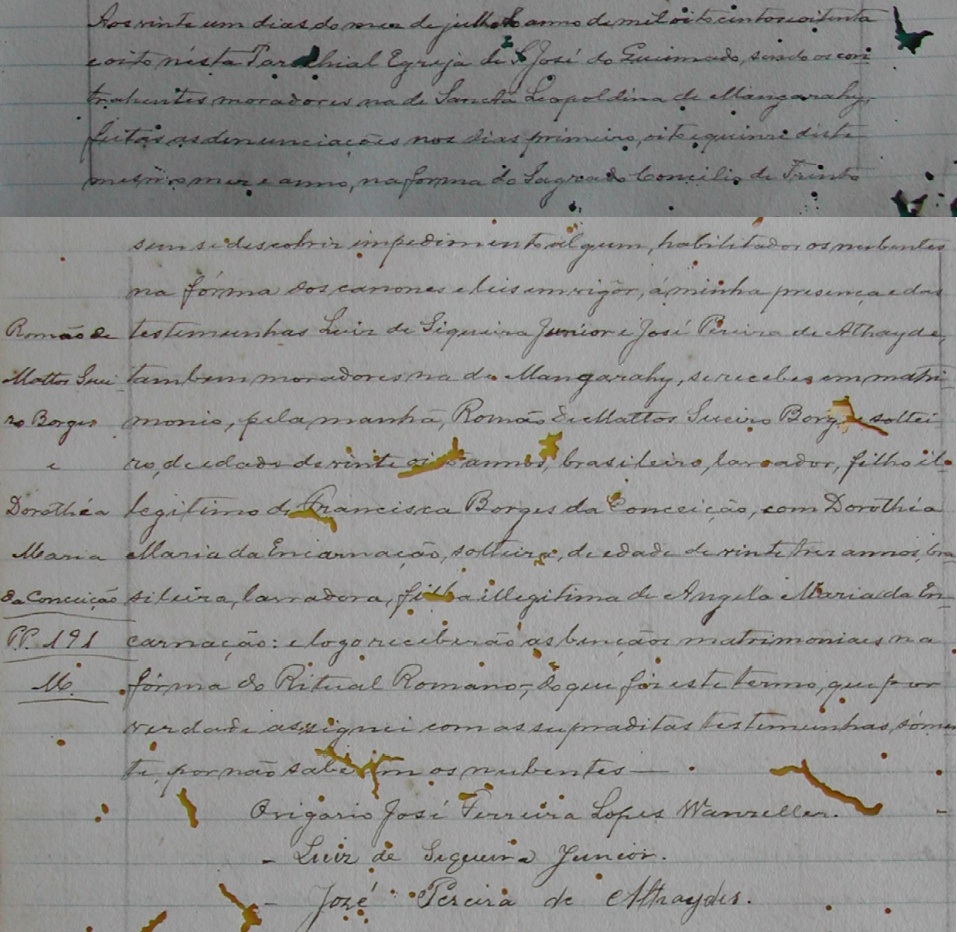 Aos vinte um dias do mez de julho do anno de mil oito centos oitenta
e oito nésta Parochial Egreja de S. José do Queimado, sendo os con
trahentes moradores na de Sancta Leopoldina de Mangarahy,
feitas as denunciações nos dias primeiro, oito e quinze deste
mesmo mez e anno, na forma do Sagrado Concilio de Trento
sem se descobrir impedimento algum, habilitados os nubentes
na fórma dos canones e leis em vigôr, á minha presença e das
testemunhas Luiz de Siqueira Junior e José Pereira de Athayde,
tambem moradores na de Mangarahy, se recebeo em matri
monio, pela manhã, Romão de Mattos Sueiro Borges soltei
ro, de edade de vinte oito annos, brasileiro, lavrador, filho il-
legitimo de Francisca Borges da Conceição, com Dorothéa
Maria da Encarnação, solteira, de edade de vinte tres annos, bra
sileira, lavradora, filha illegitima de Angela Maria da En
carnação: e logo receberão as bençãos matrimoniaes na
fórma do Ritual Romano; do que fiz este termo, que por
verdade assignei com as supraditas testemunhas, sómen
te por não saberem os nubentes
O vigario José Ferreira Lopes Wanzeller.
- Luiz de Siqueira Junior.
- José Pereira de Athaydes.
Romão de
Mattos Suei
ro Borges
e
Dorothéa
Maria
da Conceição
PP. 191
M.